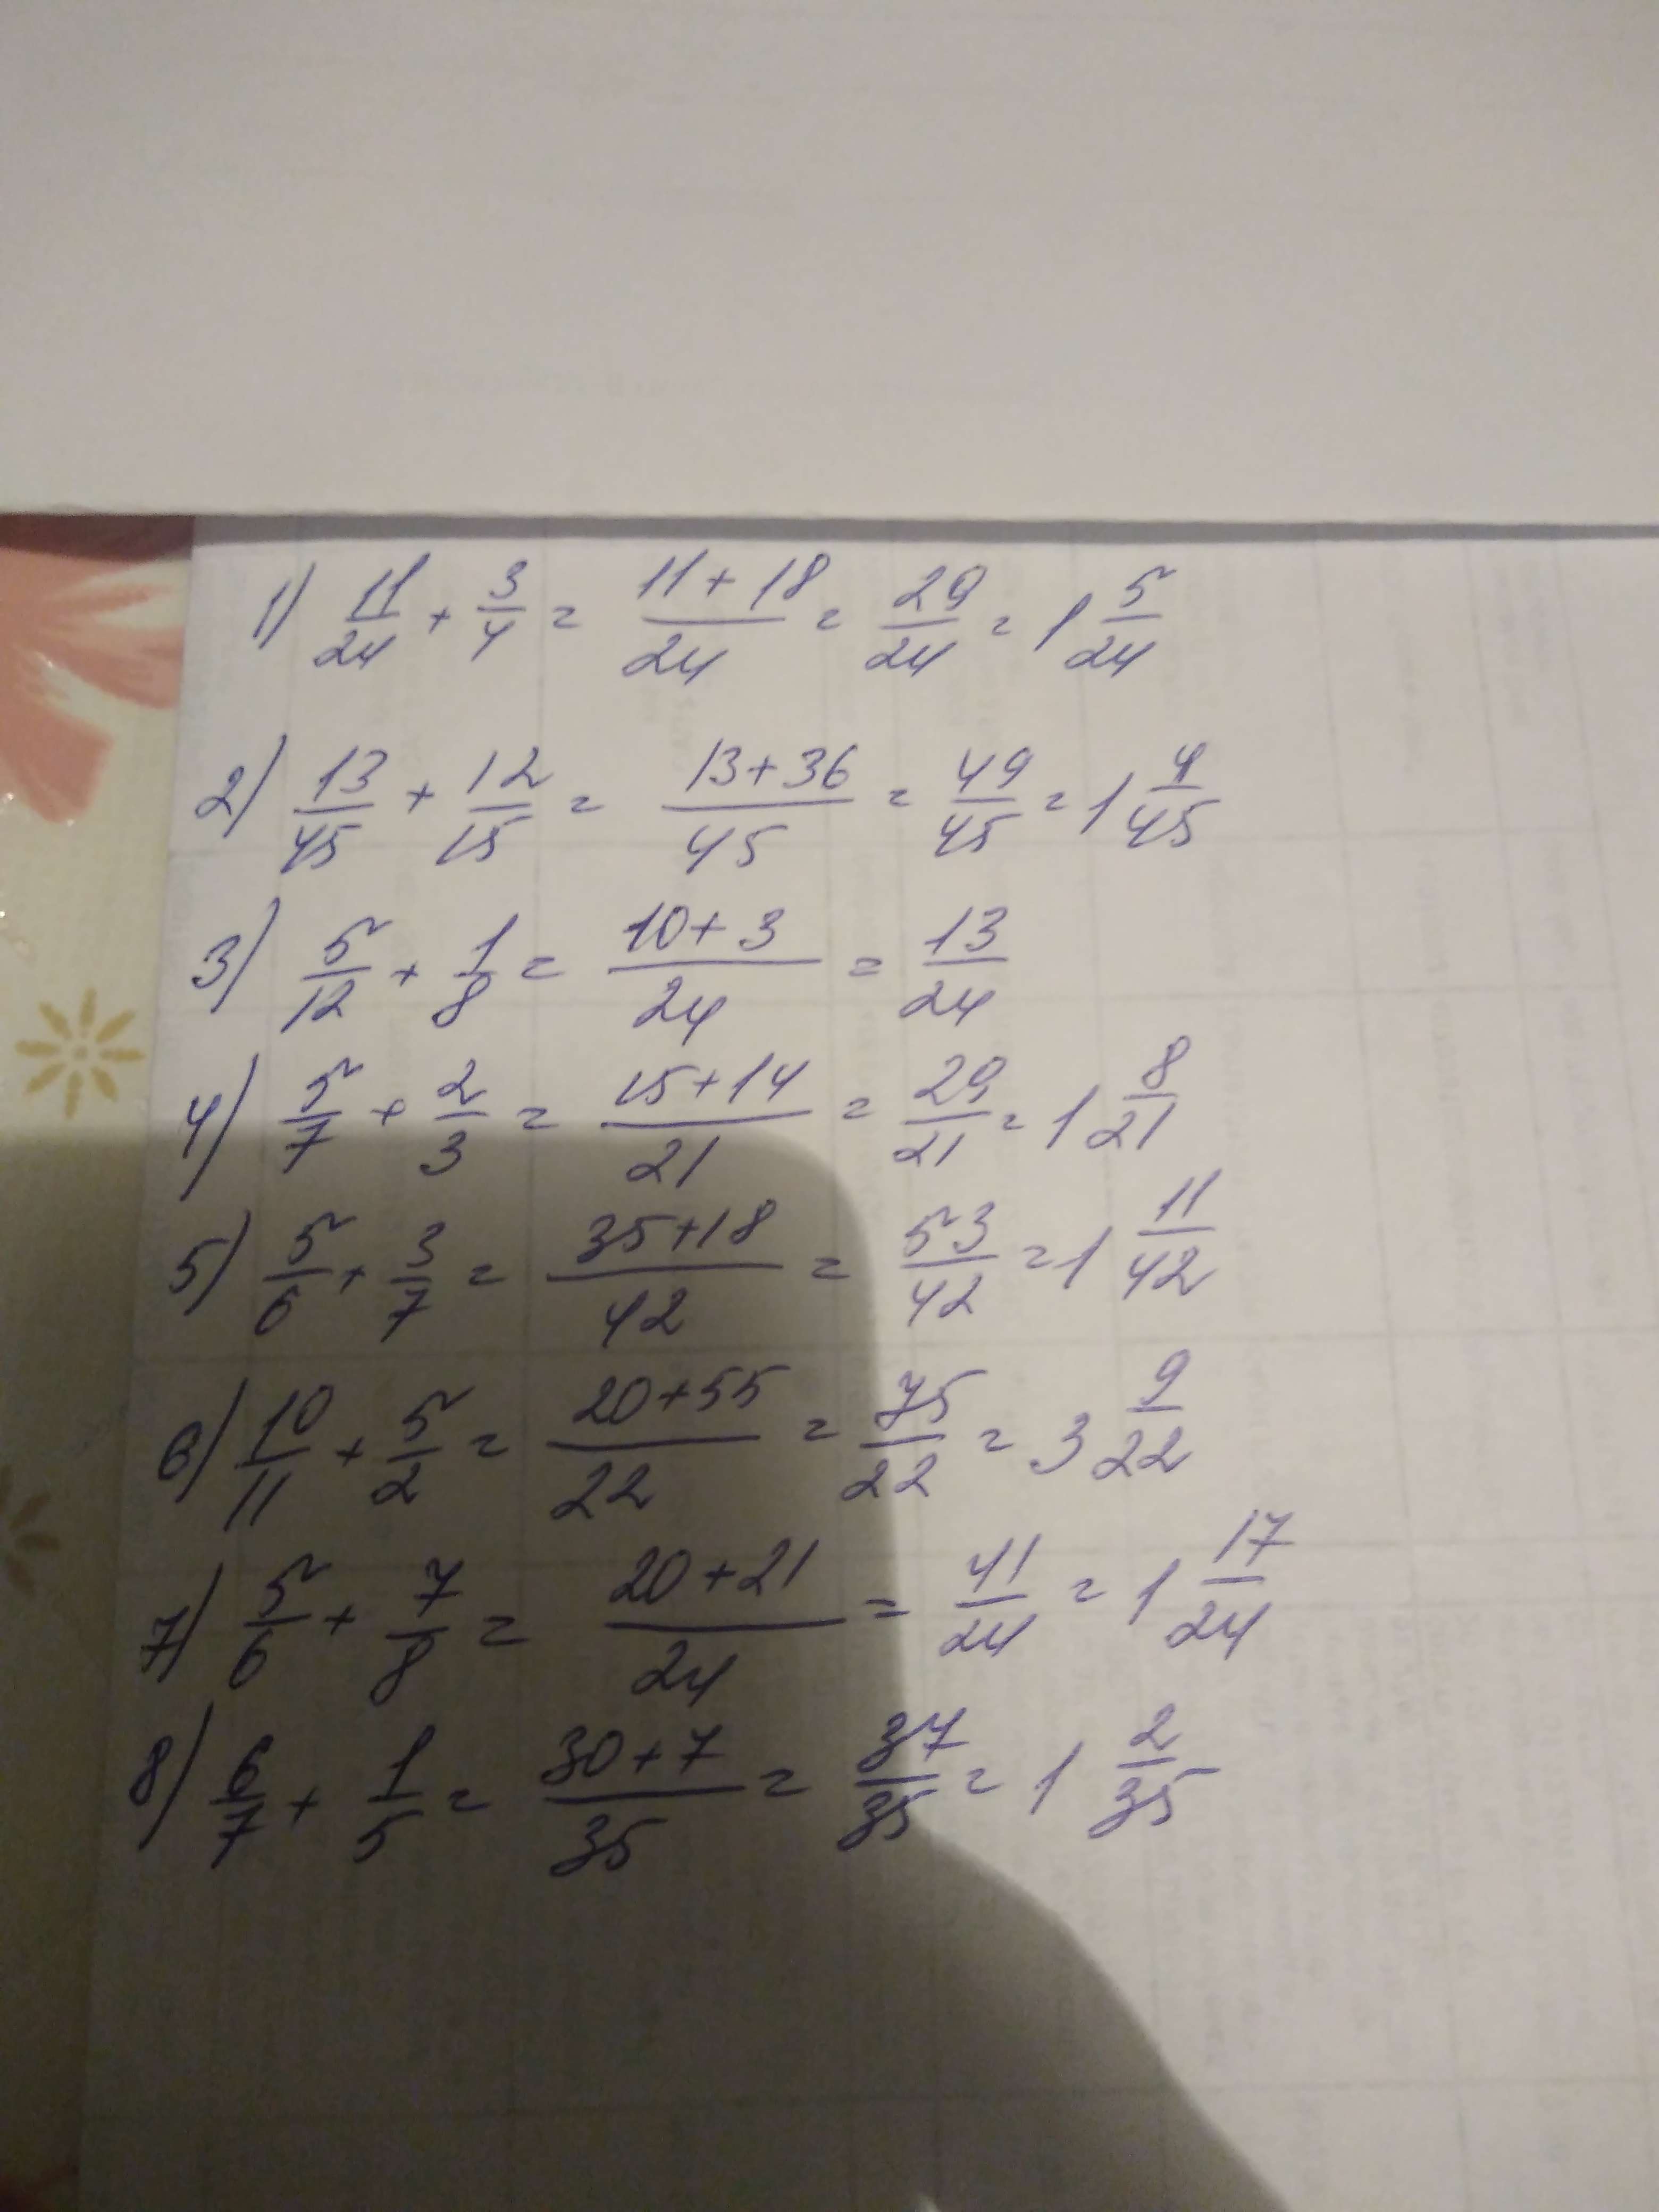 1) 11/24 + 3/4 = (11+18)/24 = 29/24 = 1 5/24
2) 13/45 + 12/15 = (13+36)/45 = 49/45 = 1 4/45
3) 5/12 + 1/8 = (10+3)/24 = 13/24
4) 5/7 + 2/3 = (15+14)/21 = 29/21 = 1 8/21
5) 5/6 + 3/7 = (35+18)/42 = 53/42 = 1 11/42
6) 10/11 + 5/2 = (20+55)/22 = 75/22 = 3 9/22
7) 5/6 + 7/8 = (20+21)/24 = 41/24 = 1 17/24
8) 6/7 + 1/5 = (30+7)/35 = 37/35 = 1 2/35